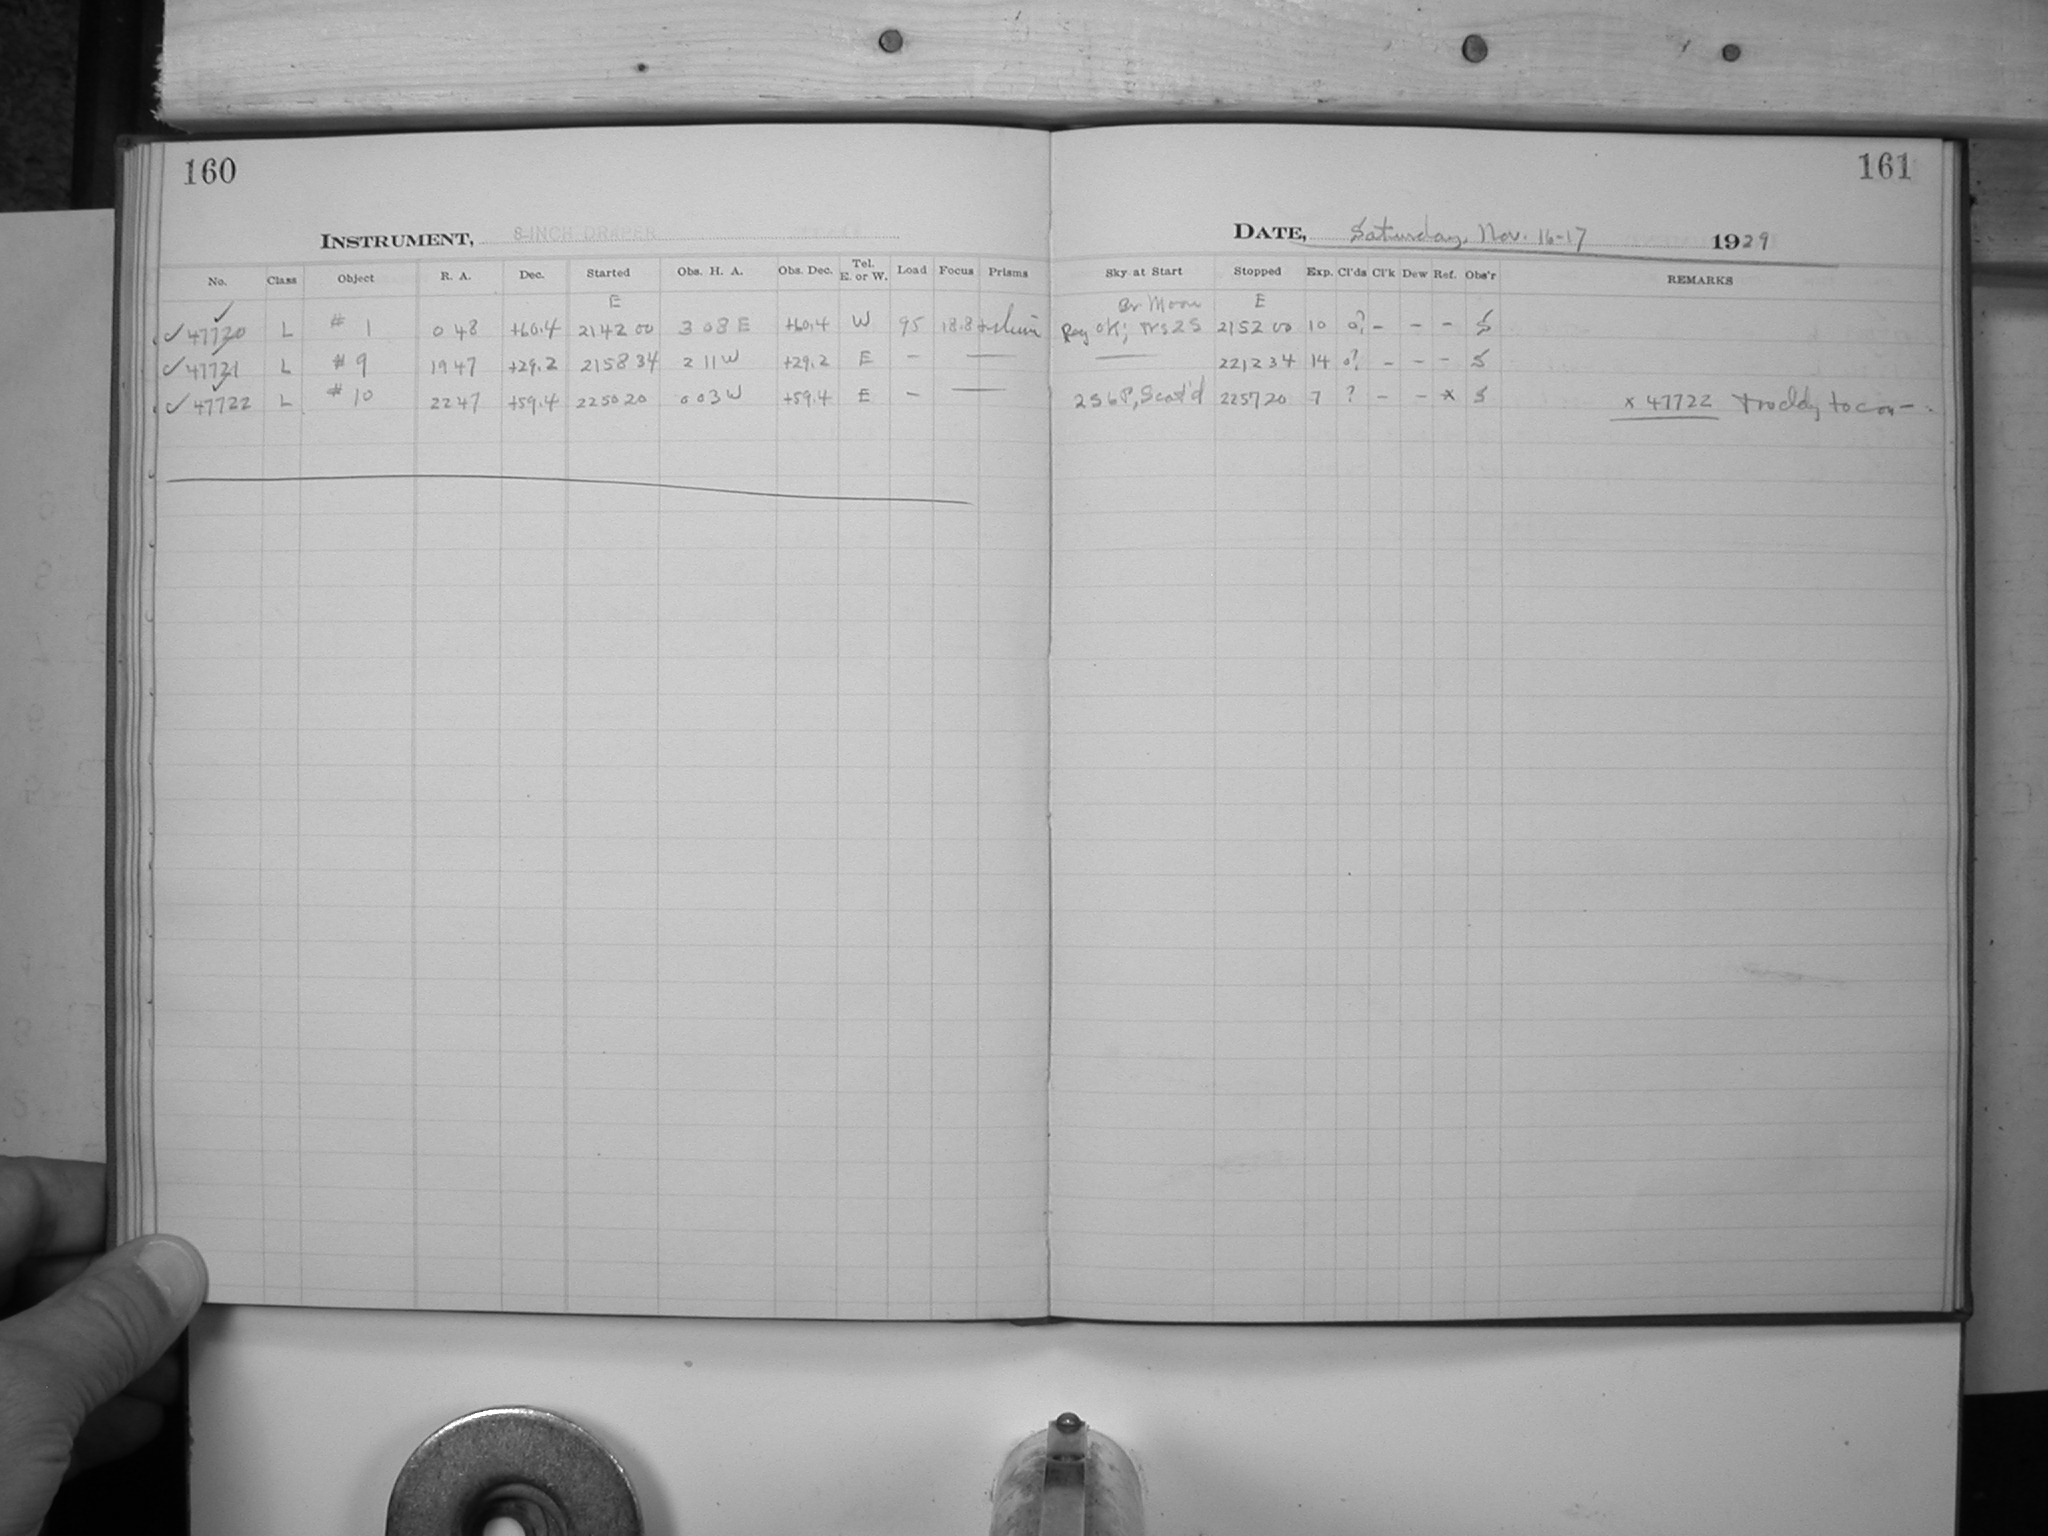 160
INSTRUMENT, 8-INCH DRAPER
No. Class Object R. A. Dec. Started Obs. H. A. Obs. Dec. Tel. E. or W. Load Focus Prisms
E
✓ 47720 L # 1 0 48 +60.4 21 42 00 3 08 E +60.4 W 95 18.8
✓ 47721 L # 9 19 47 +29.2 21 58 34 2 11 W +29.2 E – —
✓ 47722 L # 10 22 47 +59.4 22 50 20 0 03 W +59.4 E – —
161
DATE, Saturday, Nov. 16-17 1929
Sky at Start Stopped Exp. Cl'ds Cl'k Dew Ref. Obs'r REMARKS
Br Moon E
OK; 21 52 00 10 0? – – – S
— 22 12 34 14 0? – – – S
2 S 6 P, Scat'd 22 57 20 7 ? – – x S x 47722 to con–.